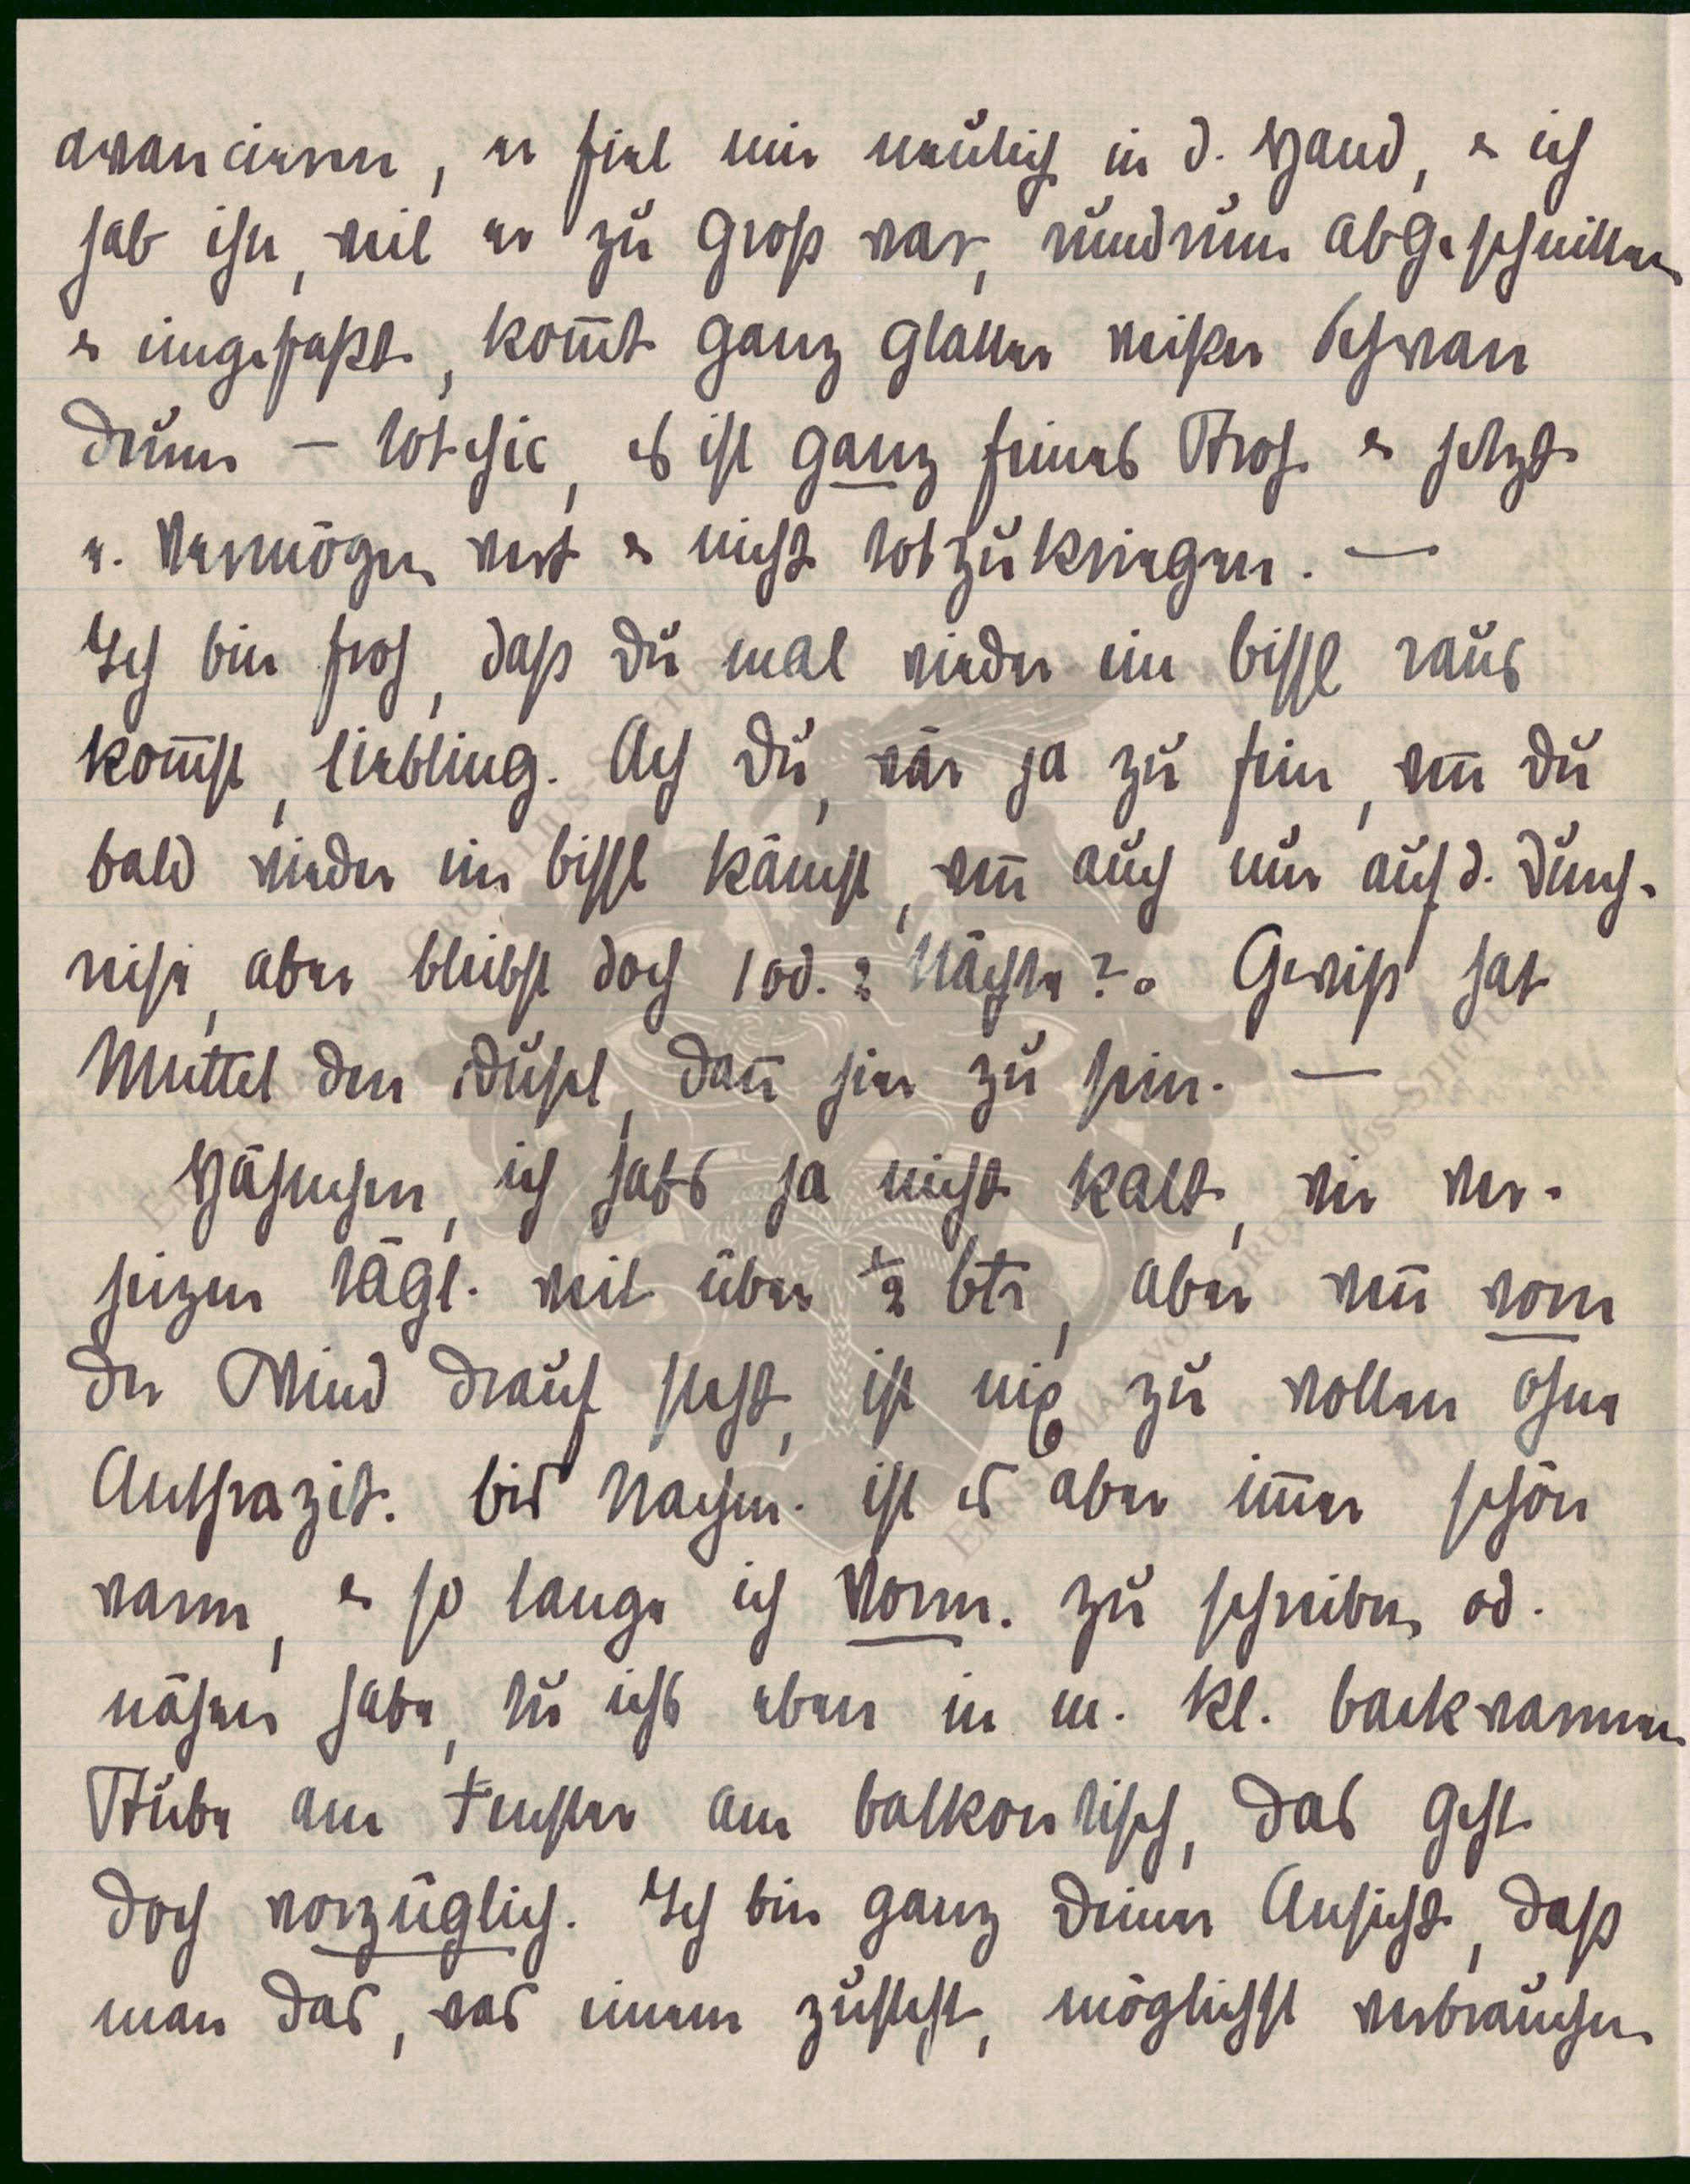 avancieren, er fiel mir neulich in d. Hand, & ich
hab ihn, weil er zu groß war, rundrum abgeschnitten
& eingefaßt, kom̅t ganz glatter weißer Schwan
drum – totchic, es ist ganz feines Stroh & jetzt
e. Vermögen wert & nicht totzukriegen. —
Ich bin froh, daß Du mal wieder ein bissl raus
kom̅st, Liebling. Ach Du, wär ja zu fein, wen̅ Du
bald wieder ein bissl kämst, wen̅ auch nur auf d. Durch-
reise, aber bleibst doch 1 od. 2 Nächte?. Gewiß hat
Muttel den Dusel, dan̅ hier zu sein. —
Häschen, ich habs ja nicht kalt, wir ver-
heizen tägl. weit über ½ Ctr, aber wen̅ vorn
der Wind drauf steht, ist nix zu wollen ohne
Anthrazit. Bis Nachm. ist es aber im̅er schön
warm, & so lange ich Vorm. zu schreiben od.
nähen habe, tu ichs eben in m. kl. backwarmen
Stube am Fenster am Balkontisch, das geht
doch vorzüglich. Ich bin ganz Deiner Ansicht, daß
man das, was einem zusteht, möglichst verbrauchen
ERNST VON SIEMENS-STIFTUNG